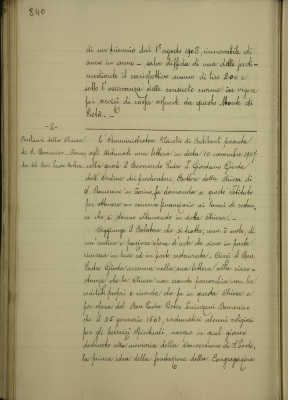 840
di un triennio dal 1º agosto 1908, rinnovabile di
anno in anno - salvo diffida di una delle parti -
mediante il corrispettivo annuo di lire 200 e
sotto l'osservanza delle consuete norme in vigore
pei servizi di cassa assunti da questo Monte di
Pietà. -
- 2 -
Restauri della Chiesa
di S. Domenico
del Rev. Padre
L'Amministratore Marchese di
agli adunati una lettera in data 10 novembre 1907
colla quale il Reverendo Padre L. Giordano Gioda
dell'Ordine dei predicatori, Rettore della Chiesa di
S. Domenico in Torino, fa domanda a questo Istituto
per ottenere un concorso finanziario ai lavori di restauro
che si stanno ultimando in detta Chiesa. -
Aggiunge il Relatore che si tratta, come è noto, di
un antico e prezioso stema d'arte che viene in parte
rimessa in luce ed in parte restaurata. Così il Rev.
Padre Gioda accenna nella sua lettera alla circo-
stanza che la Chiesa non essendo parrocchia non ha
redditi propri e ricorda che fu in questa Chiesa e
per opera del Rev. Padre
che il 25 gennaio 1563, radunatisi alcuni religiosi
per gli Esercizi Spirituali, nacque in quel giorno
dedicato alla memoria della Conversione di S. Paolo,
la prima idea della fondazione della Congregazione